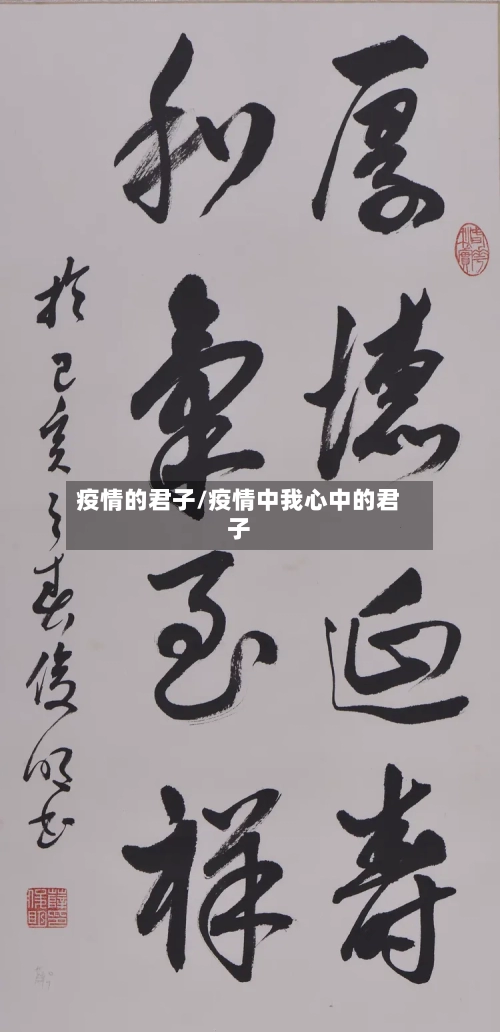 厚德延寿
和氣致祥
於己亥之春俊明书
疫情的君子/疫情中我心中的君
子